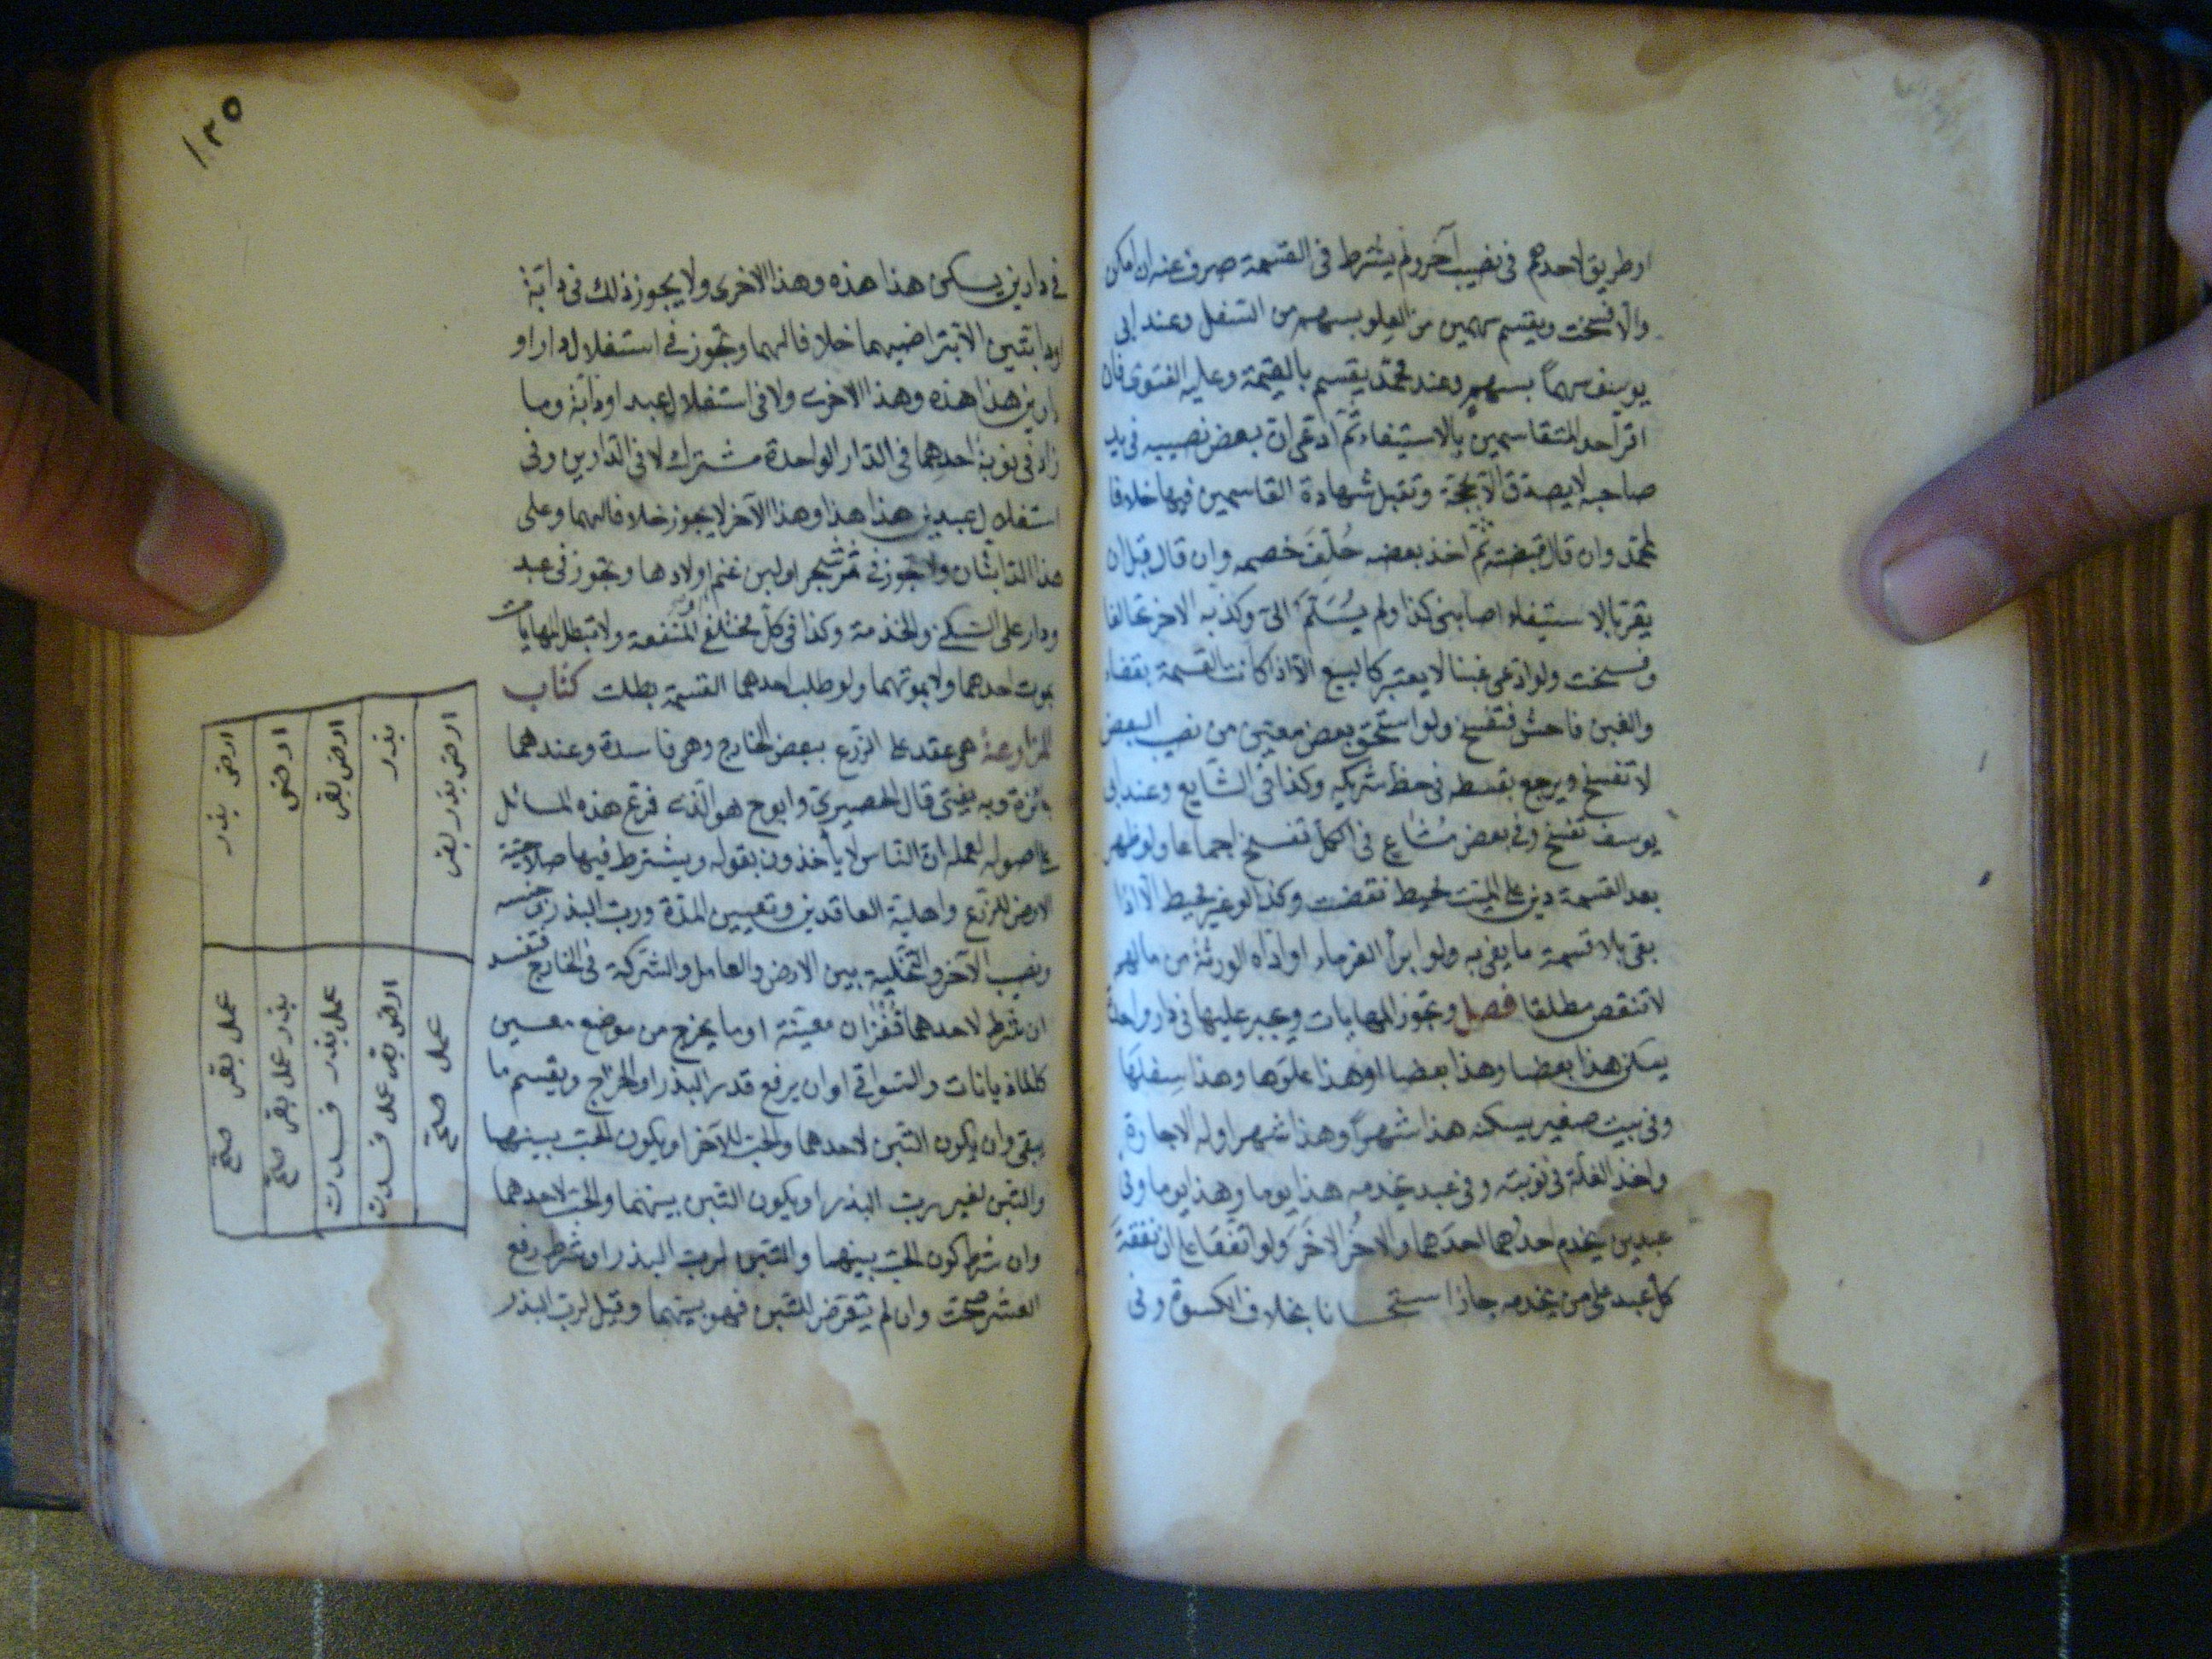 او طريق لاحدهم في نصيب آخر ولم يشترط في القسمة صرف عنه ان امكن
والا فسخت ويقسم سهمين من العلو بسهم من السفل وعند ابى
يوسف سهماً بسهم وعند محمد يقسم بالقيمة وعليه الفتوى فان
اقر احد المتقاسمين بالاستيفاء ثم ادعى ان بعض نصيبه في يد
صاحبه لا يصدق الا بحجة وتقبل شهادة القاسمين فيها خلافا
لمحمد وان قال قبضته ثم اخذ بعضه حُلِّفَ خصمه وان قال قبل ان
يقر بالاستيفاء اصابنى كذا ولم يُسَلَّم الىّ وكذبه الاخر تحالفا
وفسخت ولو ادعى غبنا لا يعتبر كالبيع الا اذا كانت القسمة بقضاء
والغبن فاحش فتفسخ ولو استحق بعض معين من نصيب البعض
لا تفسخ ويرجع بقسطه في حظ شريكه وكذا في الشايع وعند ابى
يوسف تفسخ وفي بعض مُشاع في الكل تفسخ اجماعا ولو ظهر
بعد القسمة دين على الميت محيط نقضت وكذا لو غير محيط الا اذا
بقى بلا قسمة ما يفى به ولو ابرأ الغرماء او اداه الورثة من مالهم
لا تنقض مطلقا فصل وتجوز المهايات ويجبر عليها في دار واحدة
يسكن هذا بعضا وهذا بعضا او هذا علوها وهذا سِفلَها
وفي بيت صغير يسكنه هذا شهراً وهذا شهرا وله الاجارة
واخذ الغلة في نوبته وفي عبد يخدمه هذا يوما وهذا يوما وفي
عبدين يخدم احدُهما احدَهما والاخُر الاخَر ولو اتفقا على ان نفقةَ
كل عبد على من يخدمه جاز استحسانا بخلاف الكسوة وفى
١٢٥
في دارين يسكن هذا هذه وهذا الاخرى ولا يجوز ذلك في دابة
او دابتين الا بتراضيهما خلافا لهما وتجوز في استغلال دار او
دارين هذا هذه وهذا الاخرى ولا في استغلال عبد او دابة وما
زاد في نوبة احدهما في الدار الواحدة مشترك لا في الدارين وفى
استغلال عبدين هذا هذا وهذا الآخر لا يجوز خلافا لهما وعلى
هذا الدابتان ولا تجوز في ثمر شجر او لبن غنم او اولادها وتجوز في عبد
ودار على السكنى والخدمة وكذا في كل مختلفى المنفعة ولا تبطل المهايات
بموت احدهما ولا بموتهما ولو طلب احدهما القسمة بطلت كتاب
المزارعة هى عقد على الزرع ببعض الخارج وهى فاسدة وعندهما
جائزة وبه يفتى قال الحصيرى وابو ح هو الذى فرع هذه المسائل
على اصوله لعلمه ان الناس لا يأخذون بقوله ويشترط فيها صلاحية
الارض للزرع واهلية العاقدين وتعيين المدة ورب البذر وجنسه
ونصيب الآخر والتخلية بين الارض والعامل والشركة في الخارج فتفسد
ان شرط لاحدهما قُفْزَان معينة او ما يخرج من موضع معين
كالماذيانات والسواقي او ان يرفع قدر البذر او الخراج ويقسم ما
يبقى وان يكون التبن لاحدهما والحب للآخر او يكون الحب بينهما
والتبن لغير رب البذر او يكون التبن بينهما والحب لاحدهما
وان شرط كون الحب بينهما والتبن لرب البذر او شرط رفع
العشر صحت وان لم يتعرض للتبن فهو بينهما وقيل لرب البذر
ارض بذر بقر
عمل صح
بذر
ارض بقر عمل فسدت
ارض بقر
عمل بذر فسدت
ارض
بذر عمل بقر صح
ارض بذر
عمل بقر صح